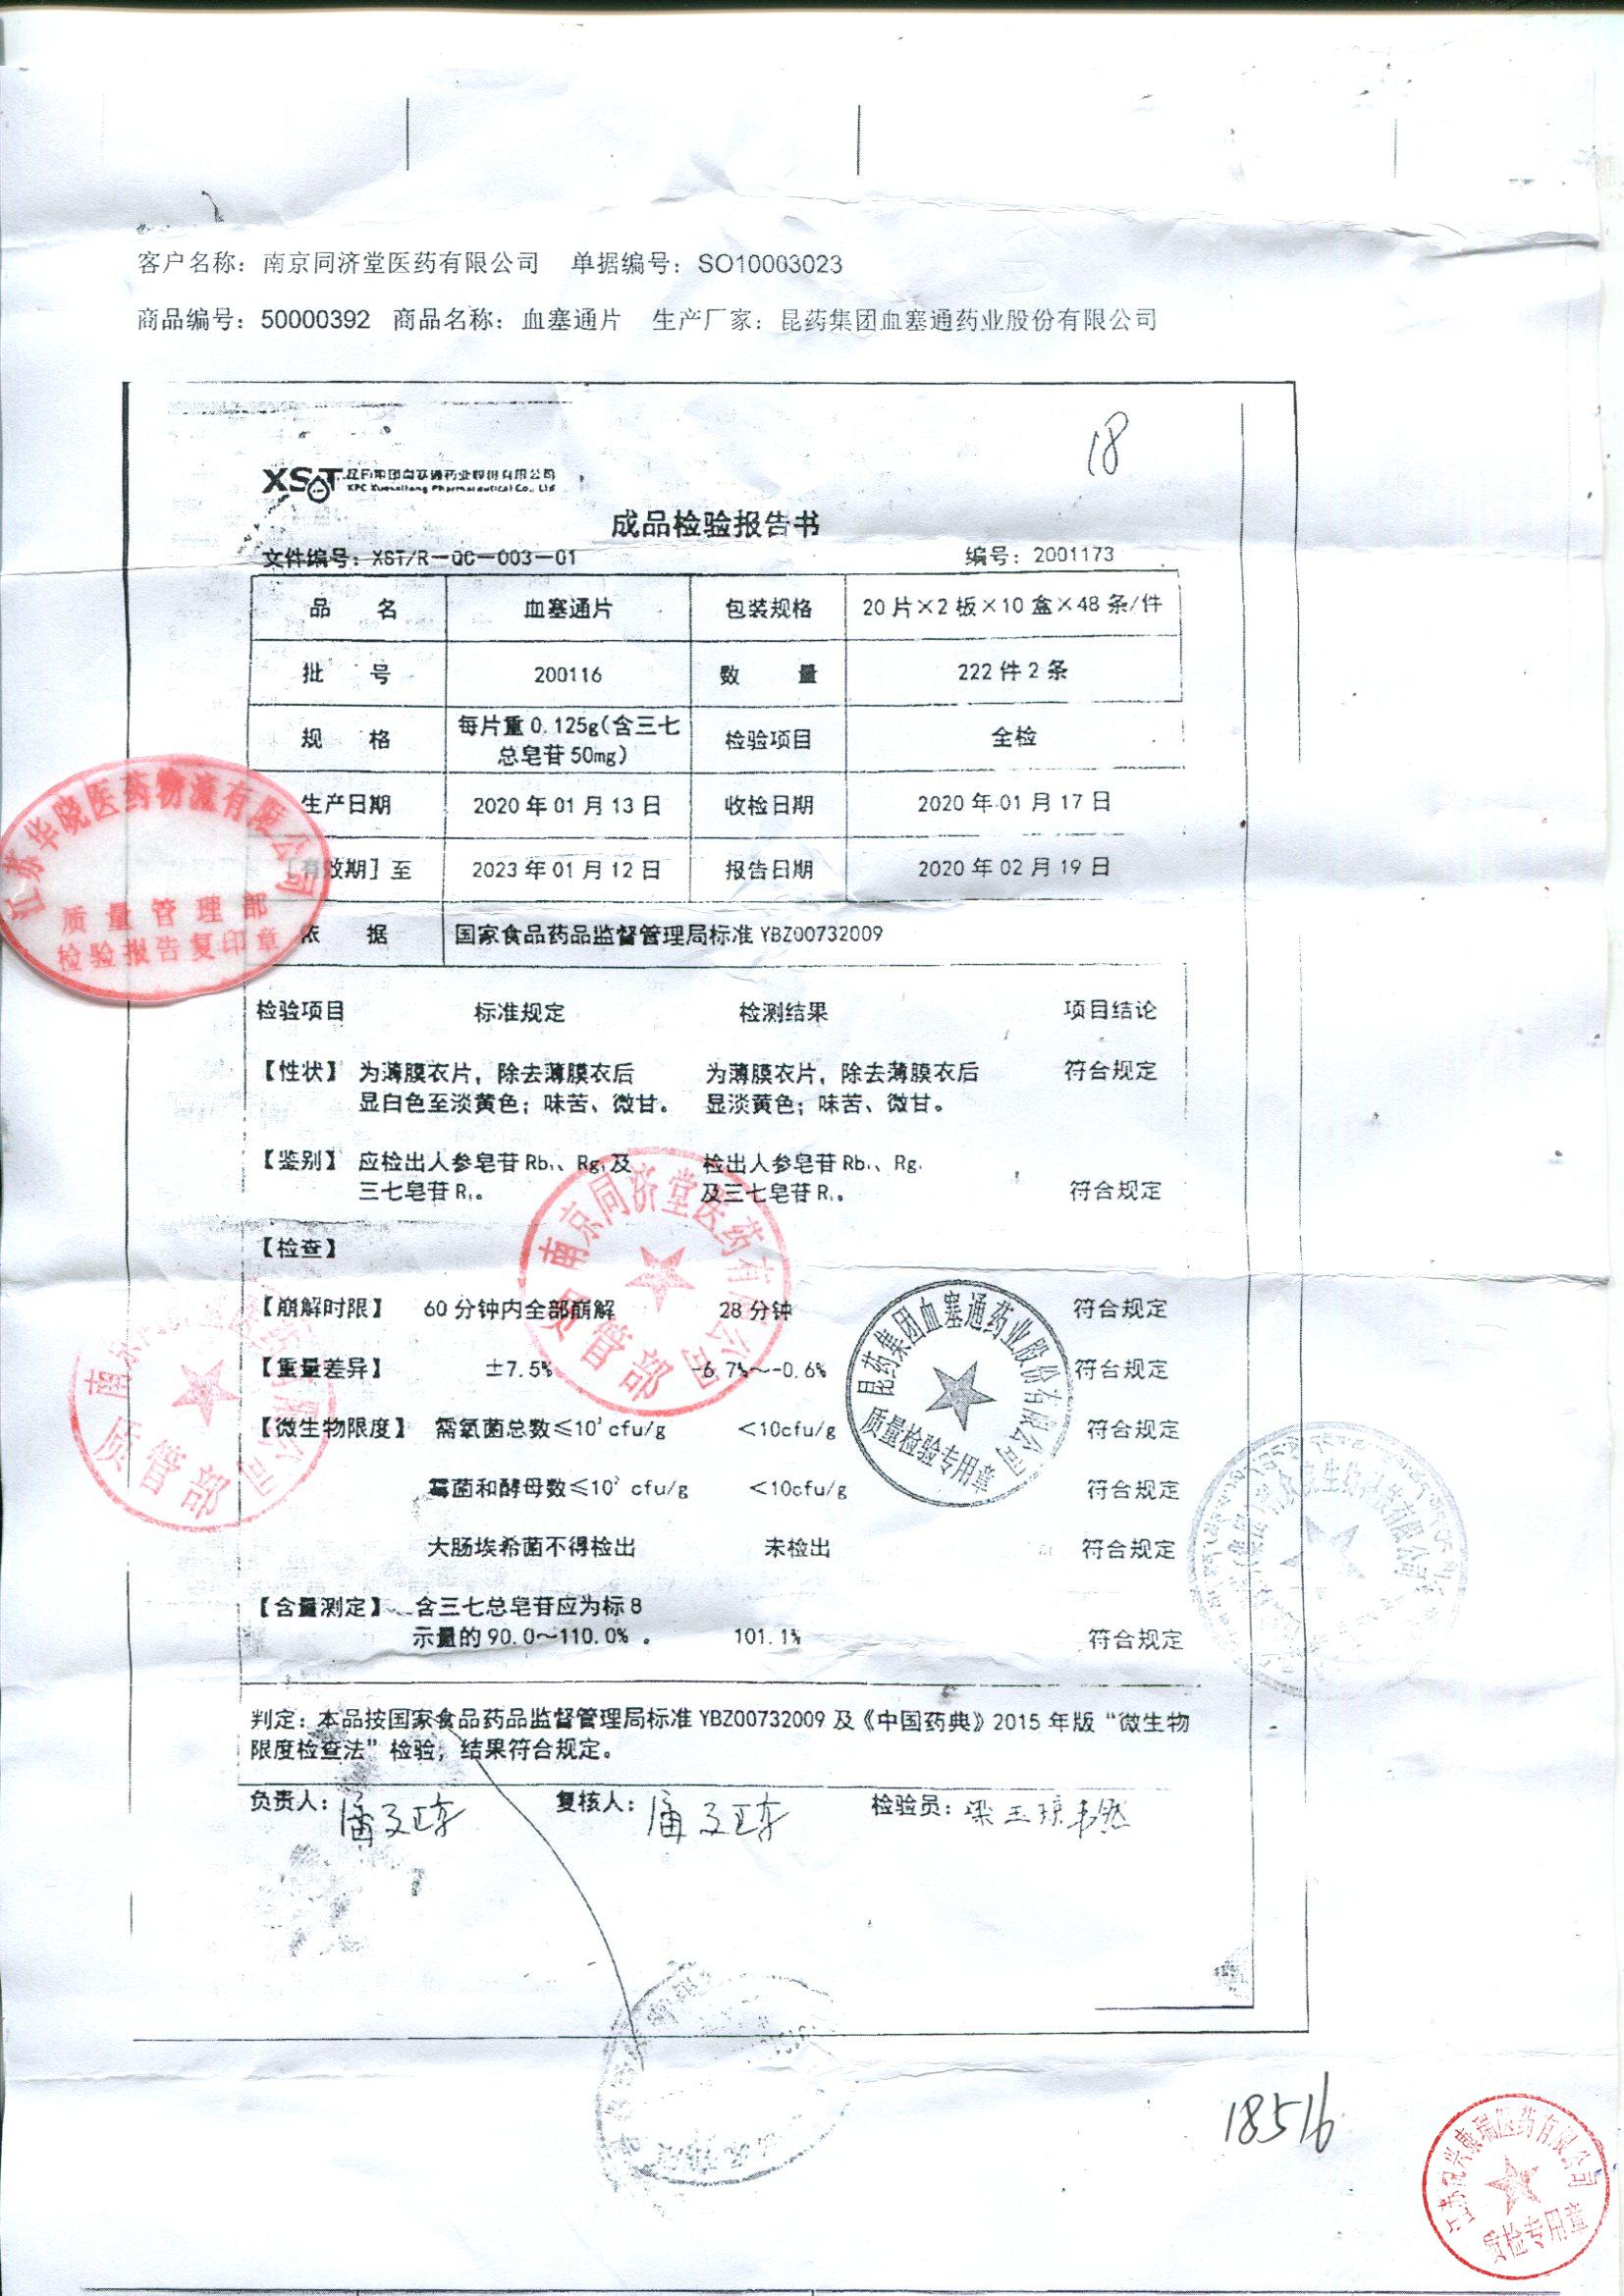 客户名称：南京同济堂医药有限公司 单据编号：SO10003023
商品编号：50000392 商品名称：血塞通片 生产厂家：昆药集团血塞通药业股份有限公司
18
XST 昆药集团血塞通药业股份有限公司
KPC Xuesaitong Pharmaceutical Co., Ltd
成品检验报告书
文件编号：XST/R-QC-003-01 编号：2001173
品 名 血塞通片 包装规格 20片×2板×10盒×48条/件
批 号 200116 数 量 222件2条
规 格 每片重0.125g(含三七总皂苷50mg) 检验项目 全检
生产日期 2020年01月13日 收检日期 2020年01月17日
[有效期]至 2023年01月12日 报告日期 2020年02月19日
依 据 国家食品药品监督管理局标准YBZ00732009
检验项目 标准规定 检测结果 项目结论
【性状】 为薄膜衣片，除去薄膜衣后 为薄膜衣片，除去薄膜衣后 符合规定
显白色至淡黄色；味苦、微甘。 显淡黄色；味苦、微甘。
【鉴别】 应检出人参皂苷Rb₁、Rg₁及 检出人参皂苷Rb₁、Rg₁
三七皂苷R₁。 及三七皂苷R₁。 符合规定
【检查】
【崩解时限】 60分钟内全部崩解 28分钟 符合规定
【重量差异】 ±7.5% -6.7%～-0.6% 符合规定
【微生物限度】 需氧菌总数≤10³cfu/g <10cfu/g 符合规定
霉菌和酵母数≤10² cfu/g <10cfu/g 符合规定
大肠埃希菌不得检出 未检出 符合规定
【含量测定】 含三七总皂苷应为标8
示量的90.0～110.0%。 101.1% 符合规定
判定：本品按国家食品药品监督管理局标准YBZ00732009及《中国药典》2015年版“微生物
限度检查法”检验，结果符合规定。
负责人： 复核人： 检验员：
江苏华晓医药物流有限公司
质量管理部
检验报告复印章
南京同济堂医药有限公司
质管部
南京同济堂医药有限公司
质管部
昆药集团血塞通药业股份有限公司
质量检验专用章
18516
质检专用章